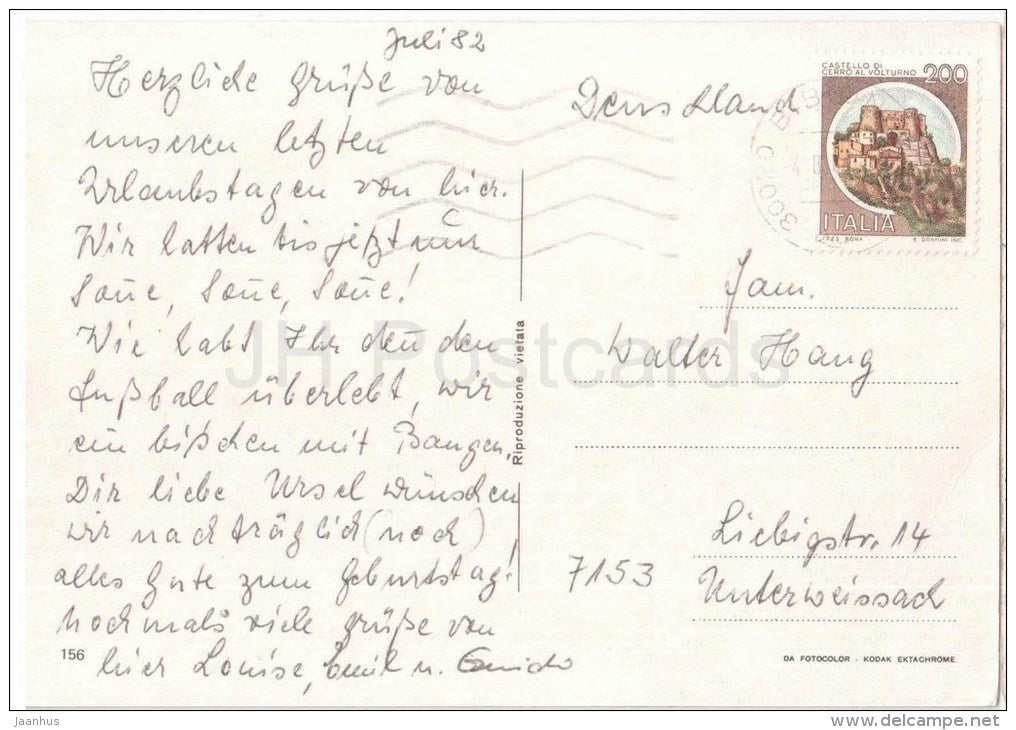 Juli 82
Herzliche Grüße von
unseren letzten
Urlaubstagen von hier.
Wir hatten bis jetzt nur
Soñe, Soñe, Soñe!
Wie habt Ihr deñ den
Fußball überlebt, wir
ein bißchen mit Bangen.
Dir liebe Ursel wünschen
wir nachträglich (noch)
alles Gute zum Geburtstag!
Nochmals viele Grüße von
hier Louise, Emil u. Guido
156
Riproduzione vietata
Deutschland
CASTELLO DI
CERRO AL VOLTURNO 200
ITALIA
I.P.Z.S. ROMA E. DONNINI INC.
30020
Fam.
Walter Haug
Liebigstr. 14
7153 Unterweissach
DA FOTOCOLOR - KODAK EKTACHROME
JH Postcards
jaanhus
www.delcampe.net